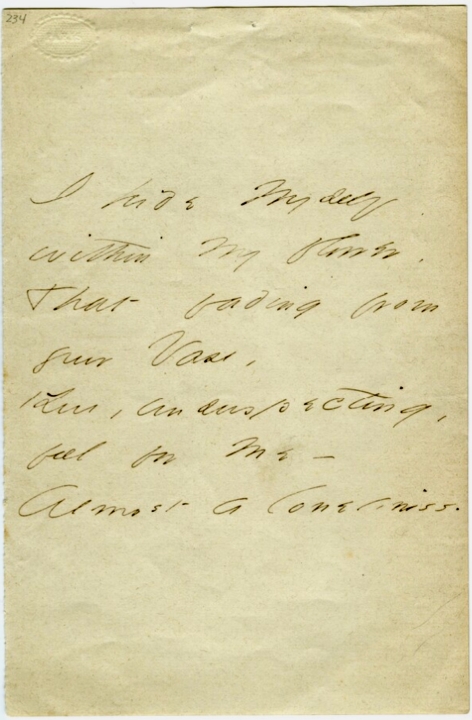 234
PARIS
I hide Myself
within my flower,
That fading from
your Vase,
You, unsuspecting,
feel for me -
Almost a loneliness.